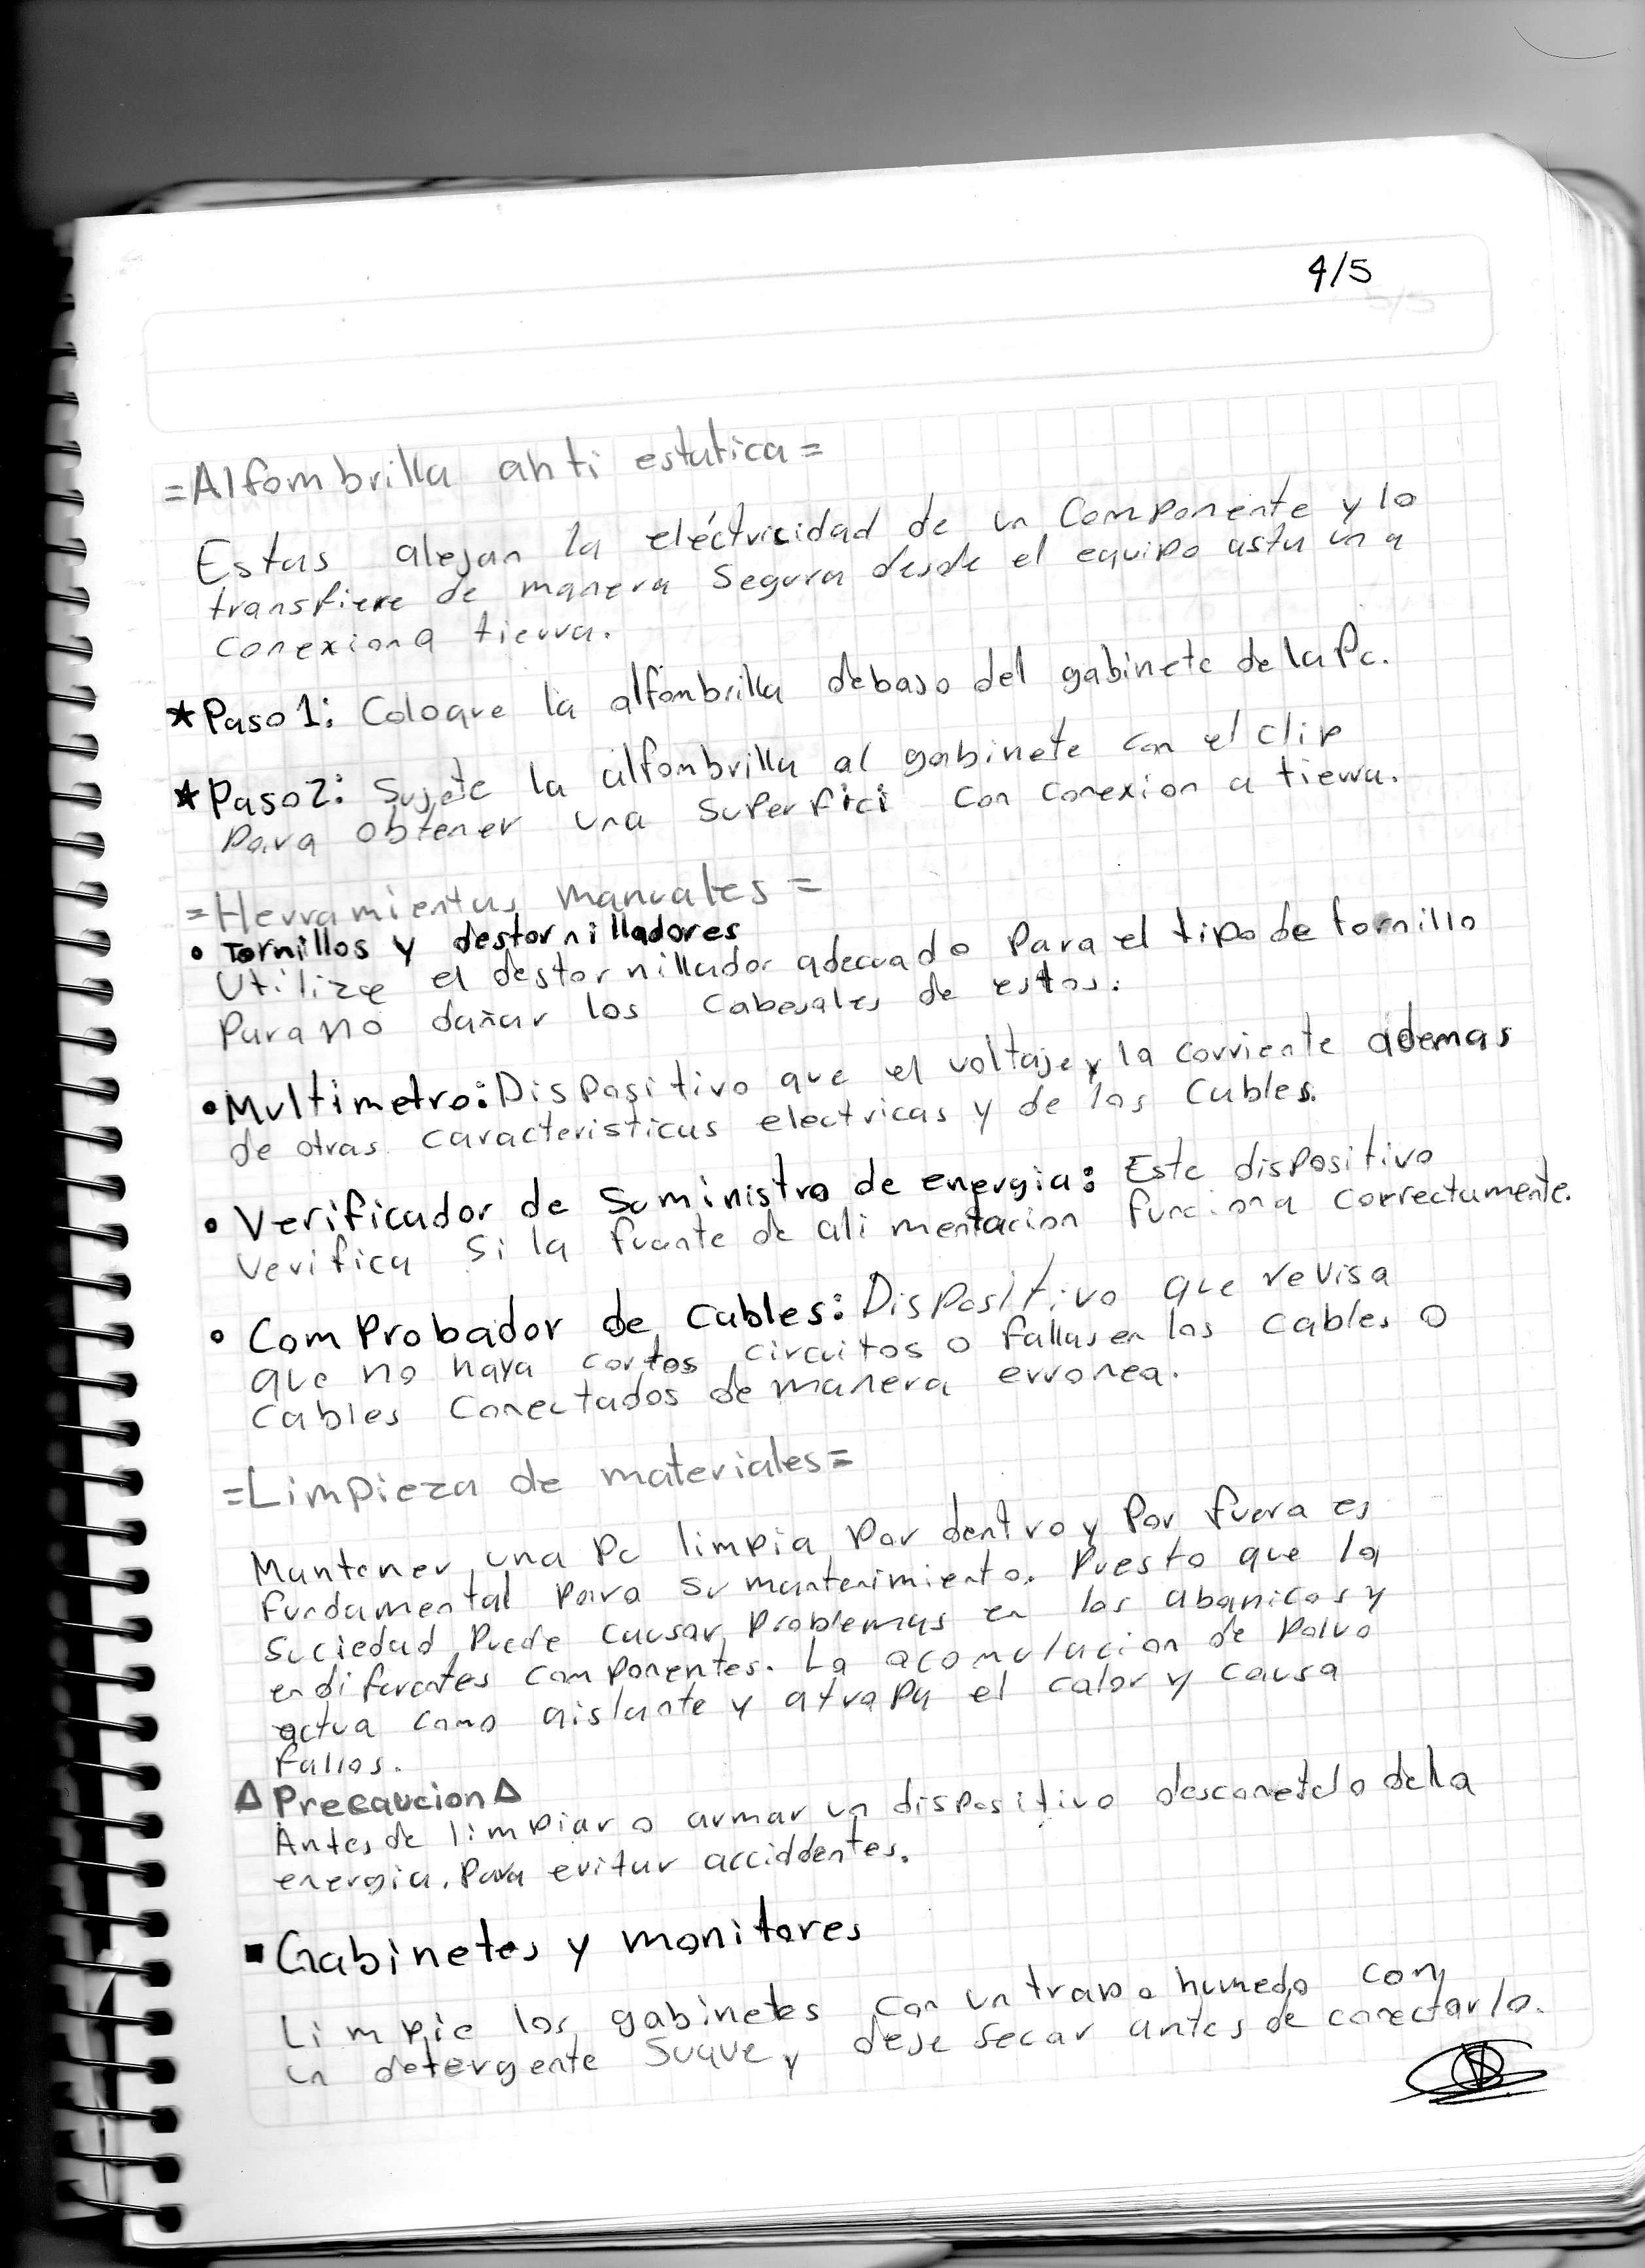 4/5
=Alfombrilla anti estatica=
Estas alejan la eléctricidad de un Componente y lo
transfiere de manera segura desde el equipo asta una
conexion a tierra.
★Paso 1: Coloque la alfombrilla debajo del gabinete de la Pc.
★Paso 2: Sujete la alfombrilla al gabinete con el clip
para obtener una superfici con conexion a tierra.
=Herramientas manuales=
• Tornillos y destornilladores
Utilize el destornillador adecuado para el tipo de tornillo
para no dañar los cabesales de estos.
•Multimetro: Dispositivo que el voltaje y la corriente ademas
de otras caracteristicas electricas y de los Cables.
• Verificador de suministro de energia: Este dispositivo
verifica si la fuente de alimentacion funciona correctamente.
• Comprobador de cables: Dispositivo que revisa
que no haya cortos circuitos o fallas en los cables o
cables conectados de manera erronea.
=Limpieza de materiales=
Mantener una Pc limpia por dentro y por fuera es
fundamental para su mantenimiento. Puesto que la
suciedad puede causar problemas en los abanicos y
en diferentes componentes. La acomulacion de polvo
actua como aislante y atrapa el calor y causa
fallos.
△Precaucion△
Antes de limpiar o armar un dispositivo desconetelo de la
energia, para evitar acciddentes.
▪Gabinetes y monitores
Limpie los gabinetes con un trapo humedo con
un detergente suave y deje secar antes de conectarlo.